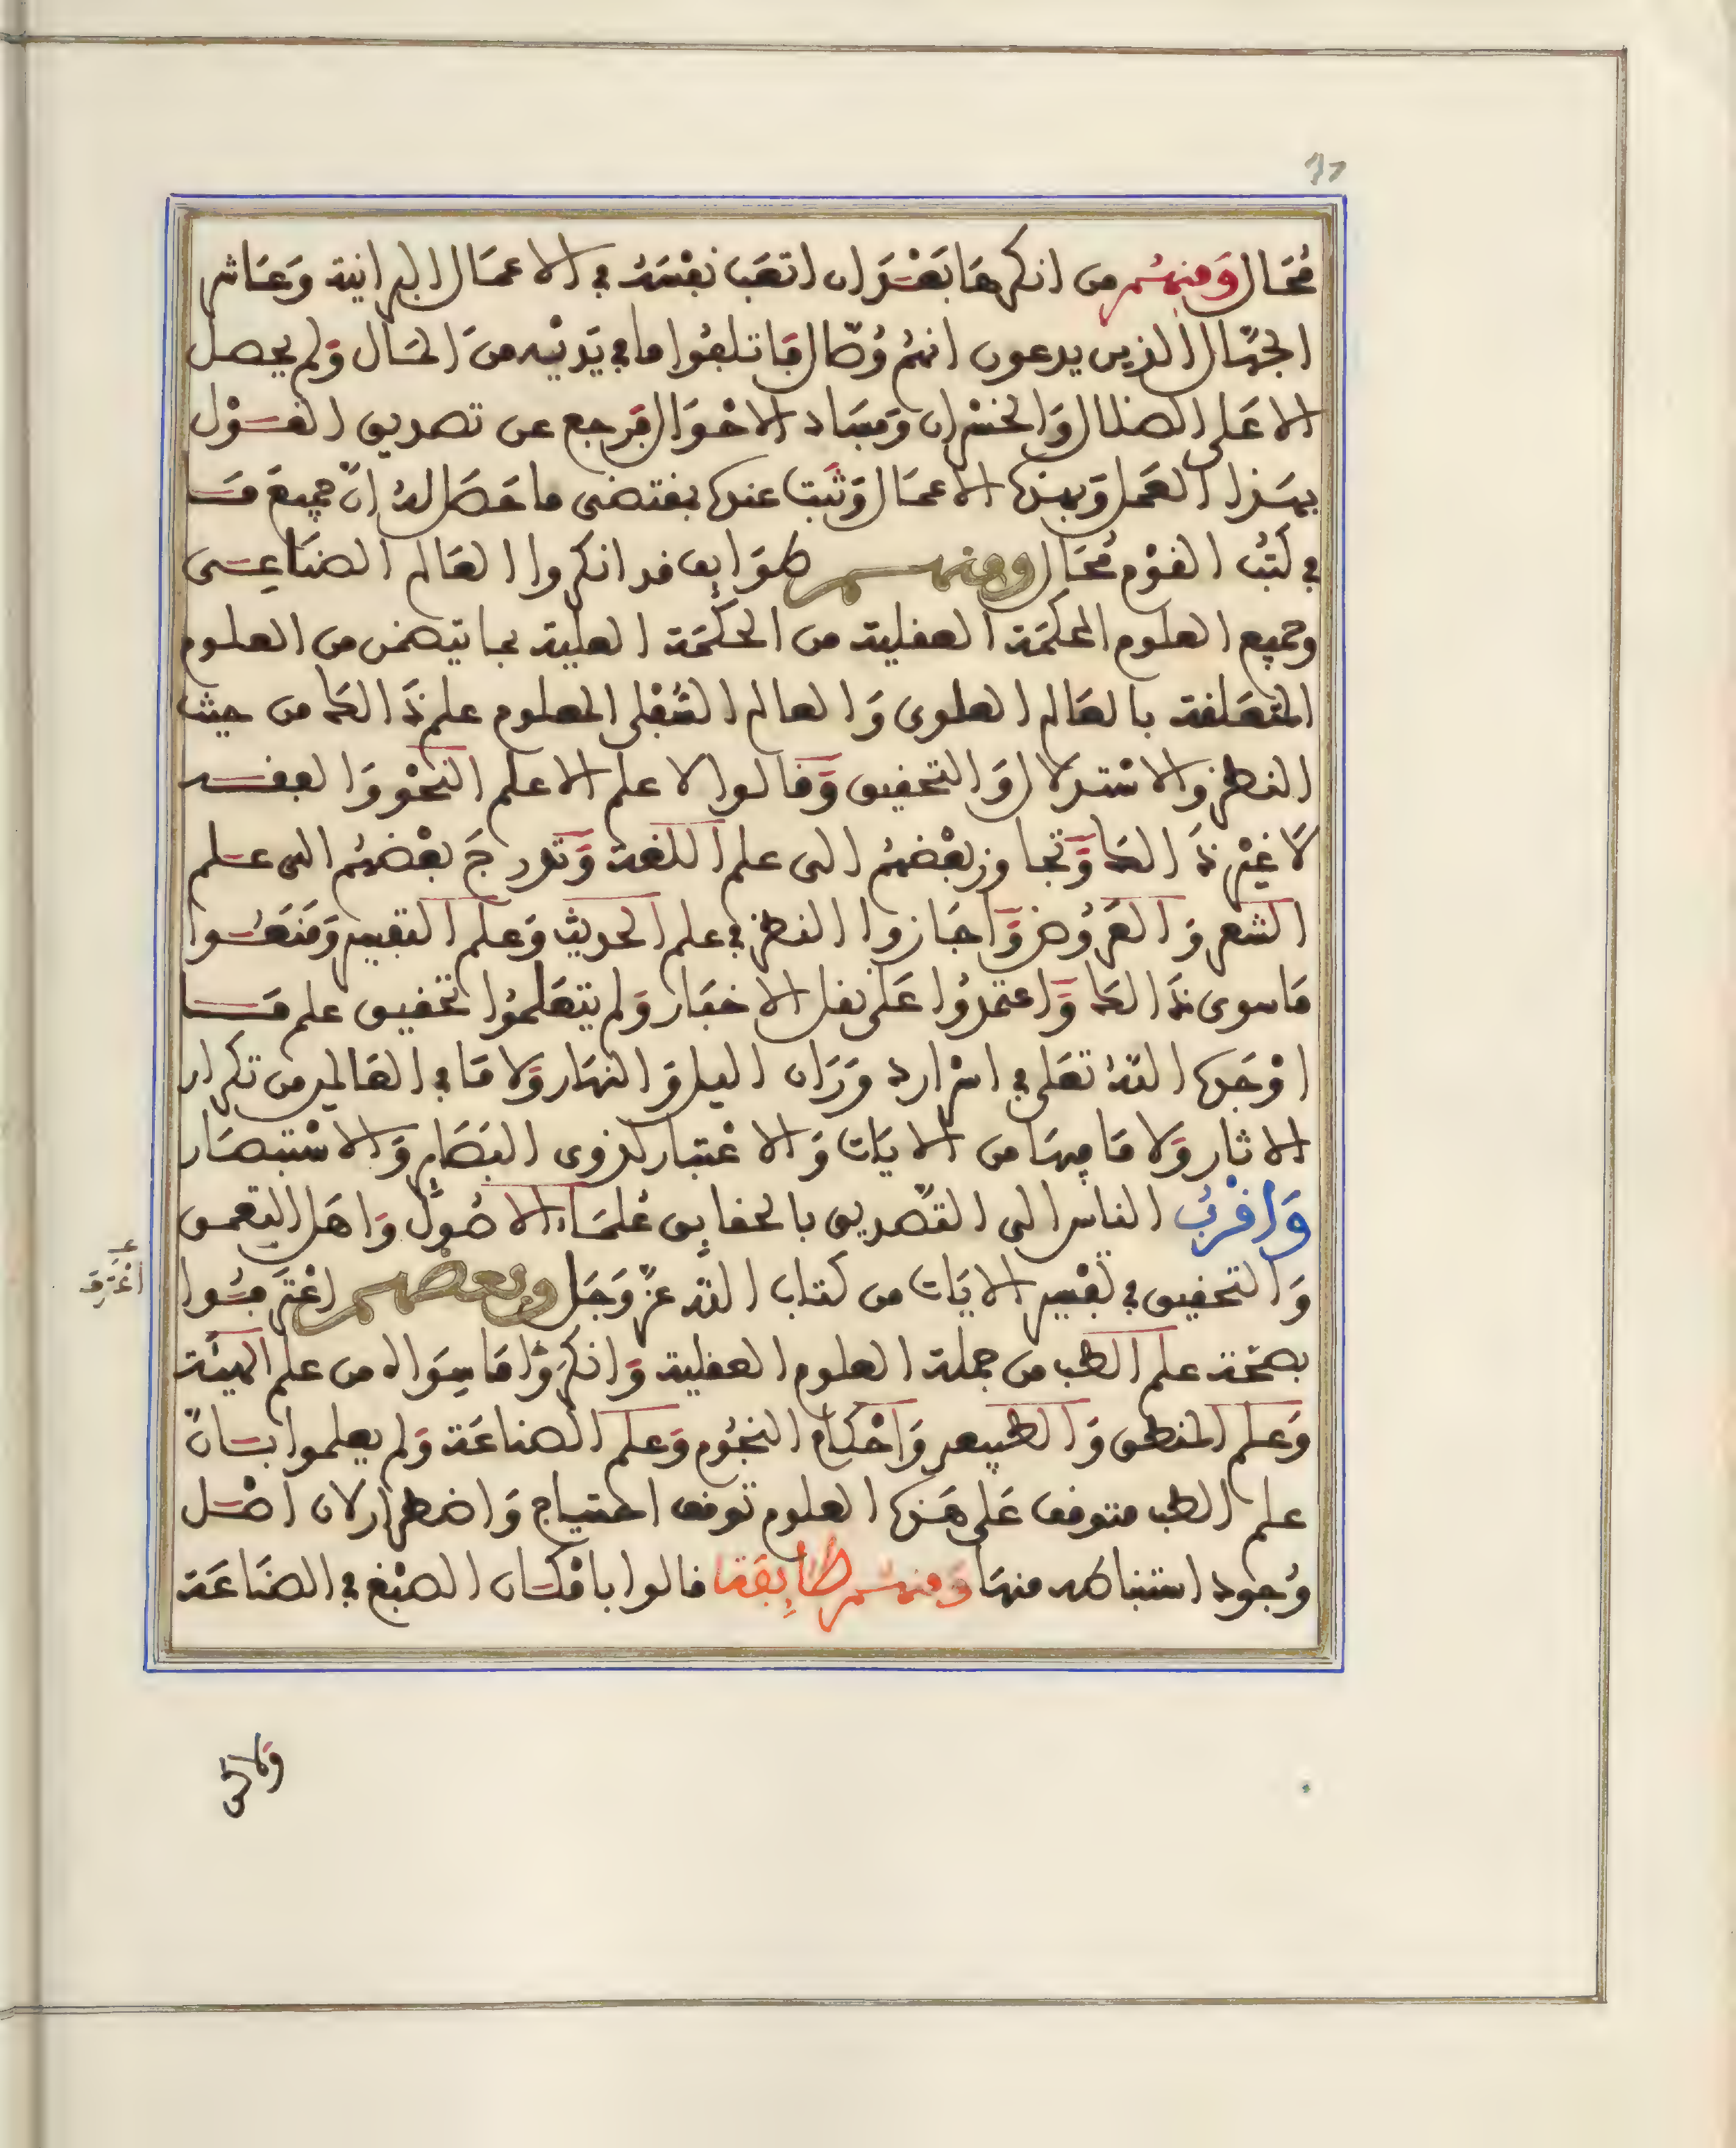 مُحَال وَمنهُم من انكرها بَعْدَ ان اتعَب نفْسَهُ في الاعمَال البرانية وَعَاشر
الجهّال الذين يدعون انهُم وُصّال فَاتلفُوا ما في يَديْه منَ المَال وَلم يحصل
الا عَلى الضلال وَالخسْران وَفسَاد الاحْوَال فَرجع عن تصديق القَوْل
بهَذا العَمل وَبهذه الاعمَال وَثَبت عنده بمقتضى ما حَصَل لهُ انّ جميعَ مَا
في كتُب القوْم مُحَال ومنهم طوَايف قد انكروا العَالم الصنَاعِى
وجميع العلوم المحكمَة العقلية من الحكْمَة العلية بما تتضمن من العلوم
المتعَلقة بالعَالم العلوى وَالعالم السُّفْلى المعلوم علم ذَالك من حيث
النظر والاسْتدلال وَالتحقيق وَقالوا لا علم الا علم النحْو وَالفقه
لَا غيْر ذَالك وَتجاوز بعْضهُم الى علم اللغة وَتدرجَ بعْضهُم الى علم
الشعر وَالعَرُوض وَاجَازوا النظر في علم الحديث وَعلم التفسير وَمَنعُوا
مَا سوى ذَالك وَاعتمدُوا عَلى نقل الاخبَار وَلم يتعَلمُوا تحقيق علم مَا
اوْجَده اللهُ تعَلى في اسْرار دوَرَان اليل وَالنهَار وَلا مَا في العَالم من تكرار
الاثار وَلا مَا فيهَا من الايَات وَالاعْتبَار لذوى البَصَاير وَالاسْتبصَار
وَاقْرَبُ الناس الى التّصديق بالحقايق عُلمَاء الاصُول وَاهَل التعمق
وَالتحقيق في تفْسير الايَات من كتاب الله عزّ وَجَل وبعضهم اعْتَرفُوا
اعْتَرَفَ
بصحّة علم الطب من جملة العلوم العقلية وَانكرُوا مَا سِوَاه من علم الهيئَة
وَعلم المنطق وَالطبيعى وَاحْكام النجُوم وَعلم الصناعَة وَلم يعلموا بَانّ
علم الطب متوقف عَلى هَذه العلوم توقف احتياج وَاضطرار لان اصْل
وُجود استنباطه منهَا وَمنهُم طَايِفَة قالوا بامْكَان الصبْغ في الصنَاعَة
وَلاكن